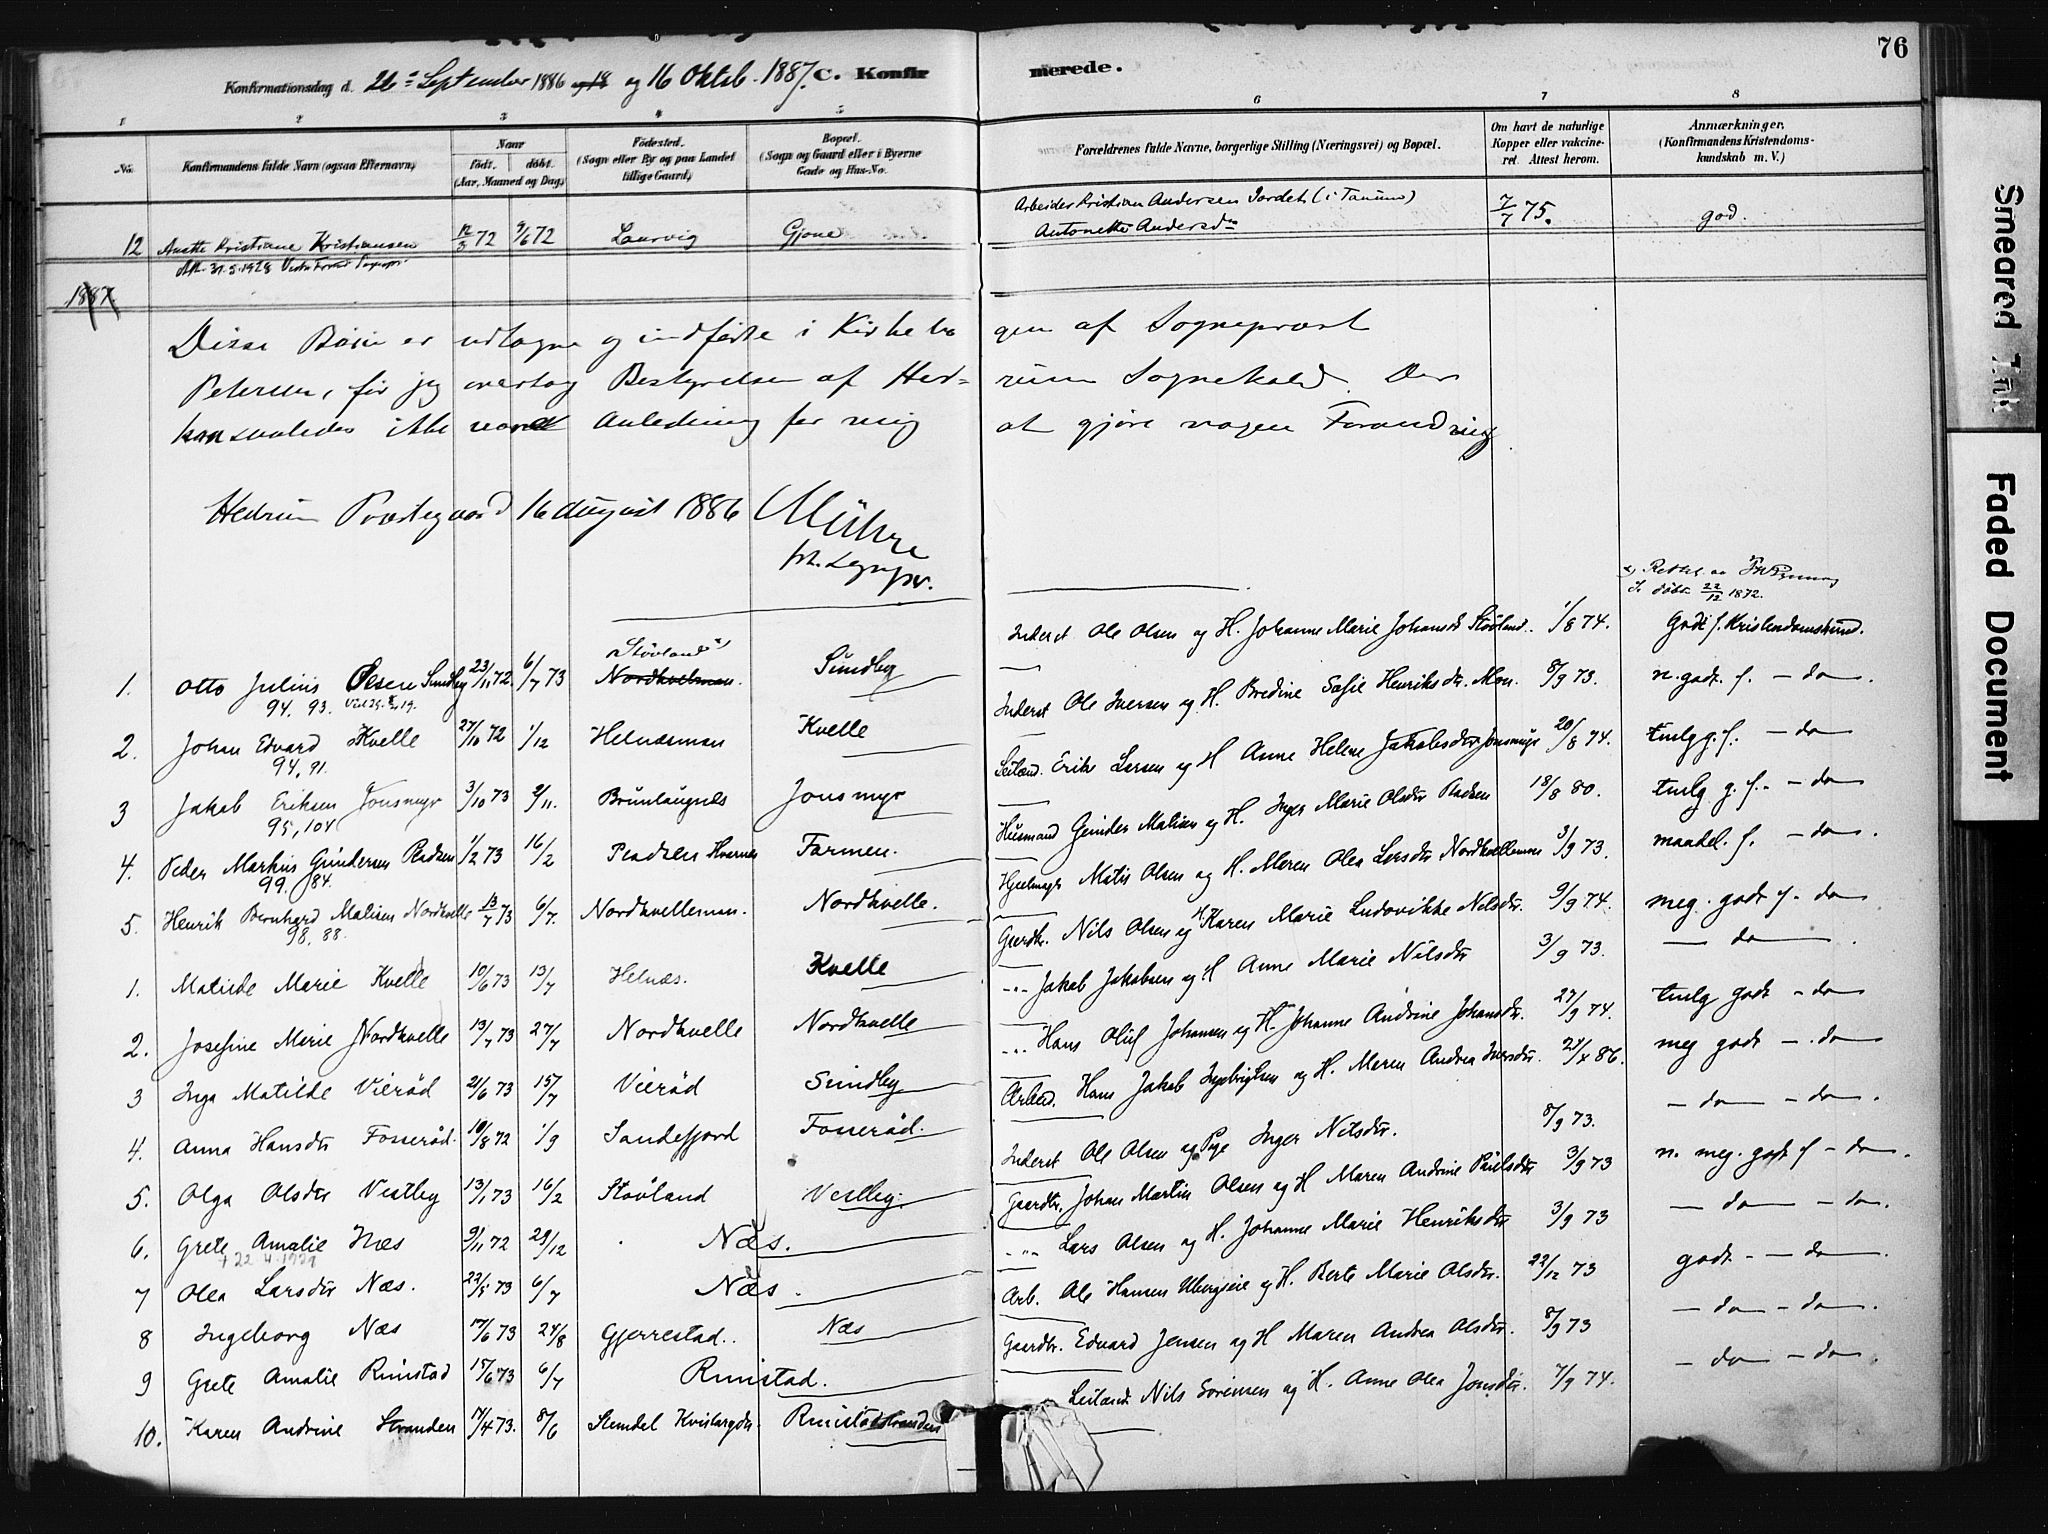 76
Konfirmationsdag d. 26de September 1886 og 16 Oktob. 1887. C. Konfir merede.
1 2 3 4 5 6 7 8
No. Konfirmandens fulde Navn (ogsaa Efternavn) Naar født, døbt. (Aar, Maaned og Dag) Fødested. (Sogn eller By og paa Landet tillige Gaard) Bopæl. (Sogn og Gaard eller i Byerne Gade og Hus-No. Forældrenes fulde Navne, borgerlige Stilling (Næringsvei) og Bopæl. Om havt de naturlige Kopper eller vakcineret. Attest herom. Anmærkninger. (Konfirmandens Kristendomskundskab m. V.)
Arbeider Kristian Andersen Jordet (i Tanum)
12 Anette Kristiane Kristiansen 12/3 72 9/6 72 Laurvig Gjone Antonette Andersd. 7/7 75. god.
Att. 31.5.1928
1887.
Disse Børn er udtagne og indførte i Kirkebogen af Sogneprest
Petersen, før jeg overtog Bestyrelsen af Hedrum Sognekald. Der
har saaledes ikke været Anledning for mig at gjøre nogen Forandring.
Hedrum Præstegaard 16 august 1886
døbt 22/12 1872.
1. Otto Julius Olsen Sundby 23/11 72. 6/7 73 Støvland Nordkvelmen. Sundby Inderst Ole Olsen og H. Johanne Marie Johansd. Støvland. 1/8 74. Godt f. Kristendomskund.
94. 93.
2. Johan Edvard Kvelle 27/10 72 1/12 Helnæsmoen Kvelle Inderst Ole Iversen og H. Bredine Sofie Henriksdr. Moen. 8/9 73. n. godt. f. - do.
94, 91.
3 Jakob Eriksen Jonsmyr 3/10 73 2/11. Brunlaugnes Jonsmyr Leilænd. Erik Larsen og H Anne Helene Jakobsdr Jonsmyr 20/8 74. tmlg g. f. - do
95, 104
4. Peder Markus Gundersen Pladsen 1/2 73 16/2 Pladsen Hvarnes Farmen. Husmand Gunder Matisen og H. Inger Marie Olsdr Pladsen 18/8 80. tmlg g. f. - do
99. 84.
5. Henrik Bernhard Matisen Nordkvelle 13/7 73 6/7. Nordkvellemoen. Nordkvelle. Matis Olsen og H. Maren Olea Larsdr Nordkvellemoen 3/9 73. maadel. f. - do
98, 88.
1. Matilde Marie Kvelle 10/6 73 13/7 Helnæs. Kvelle Gaardbr. Nils Olsen og H Karen Marie Ludovikke Nilsdr. 9/9 74. meg. godt f. do
2. Josefine Marie Nordkvelle 13/7 73 27/7 Nordkvelle Nordkvelle Jakob Jakobsen og H Anne Marie Nilsdr 3/9 73. - do -.
3 Inga Matilde Vierød 21/6 73 15/7 Vierød Sundby Hans Oluf Johansen og H. Johanne Andrine Johansdr. 27/9 74. tmlg godt - do
4. Anna Hansdr Fosserød. 10/8 72 1/9 Sandefjord Fosserød. Arbeid. Hans Jakob Ingebrigtsen og H. Maren Andrea Iversdr. 21/X 86. meg godt - do
5. Olga Olsdr Vestby 13/1 73 16/2 Støvland Vestby. Inderst Ole Olsen og Pige Inger Nilsdr. 8/9 73. - do - do.
6. Grete Amalie Næs 9/11 72 29/12 Næs. Gaardbr. Johan Martin Olsen og H Maren Andrine Paulsdr 3/9 73 n. meg. godt f - do.
+ 22.4.1929
7 Olea Larsdr Næs. 22/5 73 6/7 Næs. Lars Olsen og H. Johanne Marie Henriksdr 3/9 73 - do - do.
8 Ingeborg Næs 17/6 73 24/8 Gjerrestad. Næs Arb. Ole Hansen og H. Berte Marie Olsdr. 22/12 73 godt - do.
9 Grete Amalie Rimstad 15/6 73 6/7 Rimstad. Gaardbr. Edvard Jensen og H Maren Andrea Olsdr. 8/9 73 - do - do.
10. Karen Andrine Stranden 17/4 73. 8/6 Slemdal Rimstadstranden Leilænd. Nils Sørensen og H. Anne Olea Jonsdr. 7/9 74. - do - do.
Smeared Ink
Faded Document